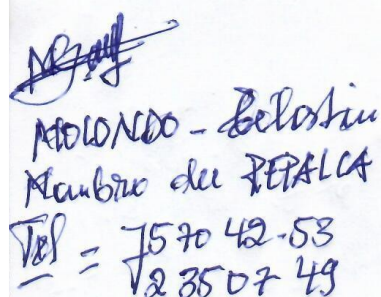 MOLONDO - Celestin
Membre du REPALCA
Tel = 7570 42-53
2350749